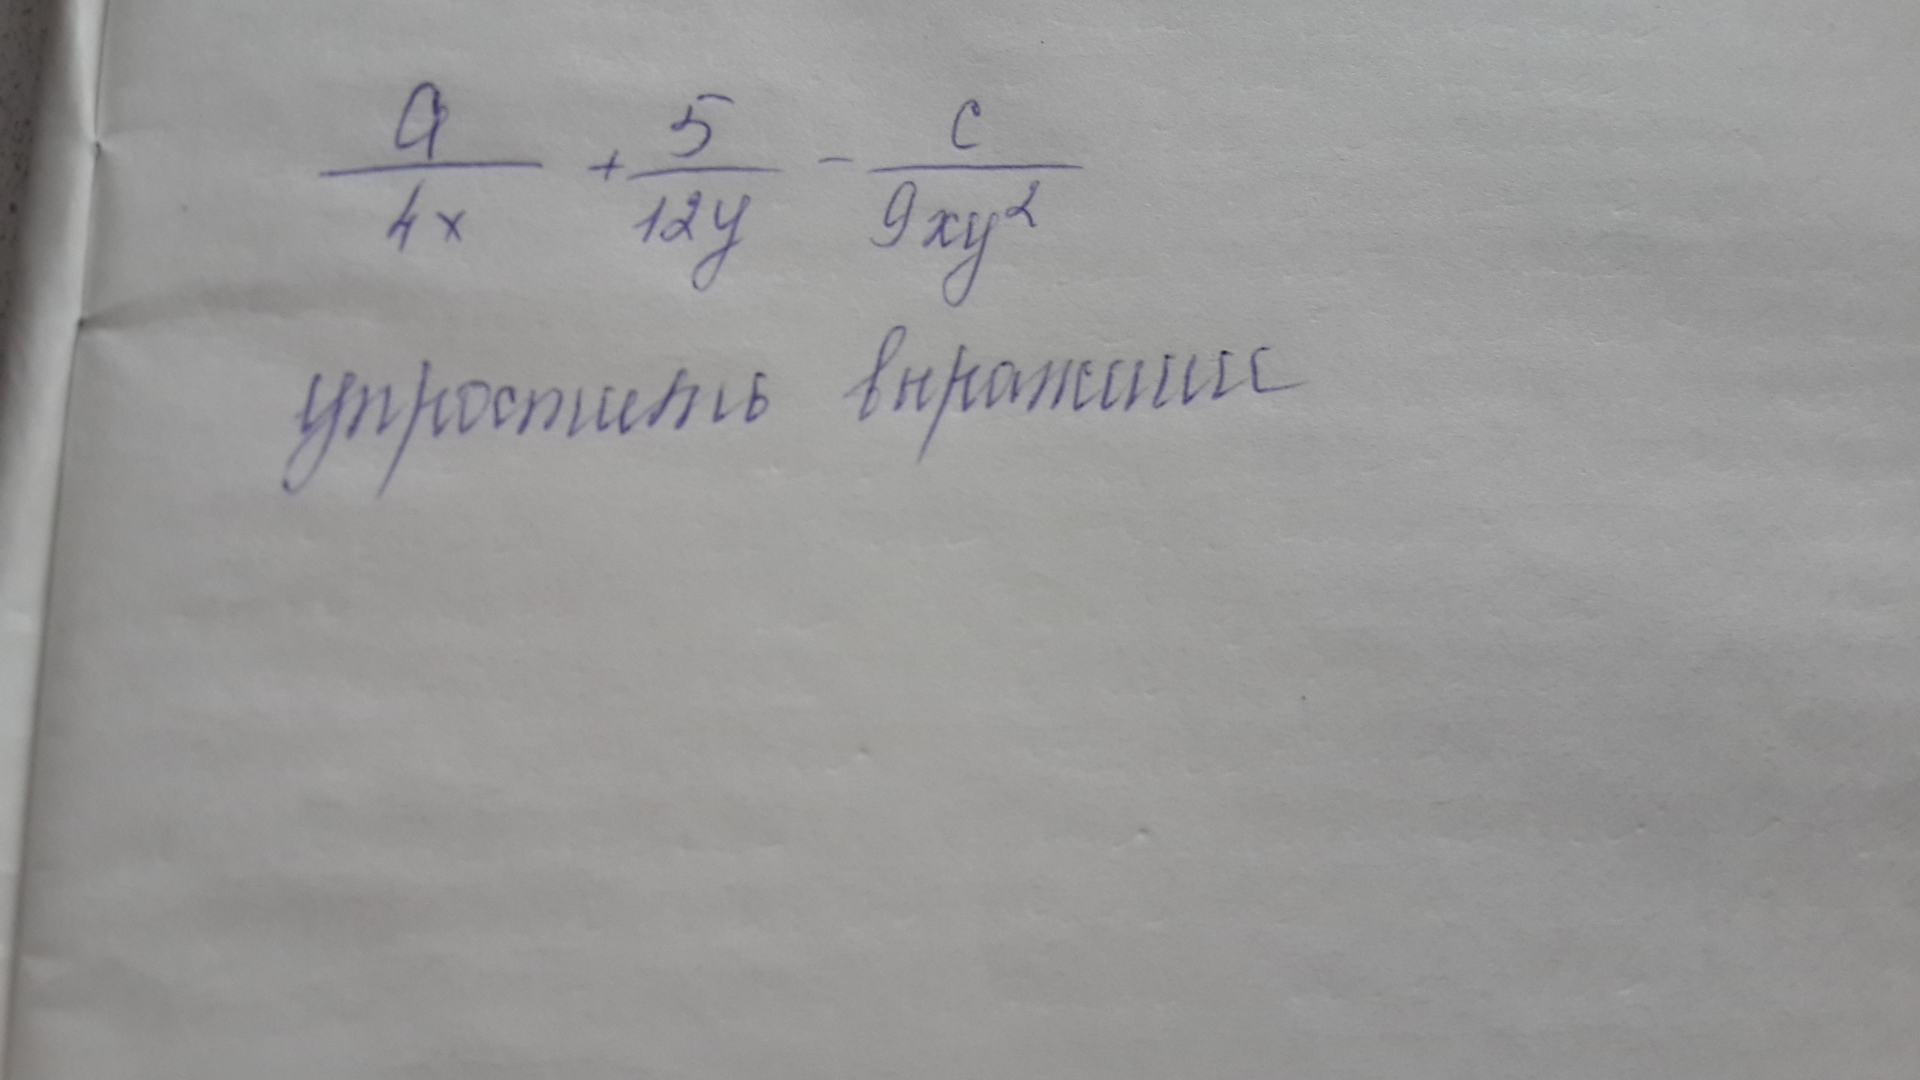 a/4x + 5/12y - c/9xy²
упростить выражение